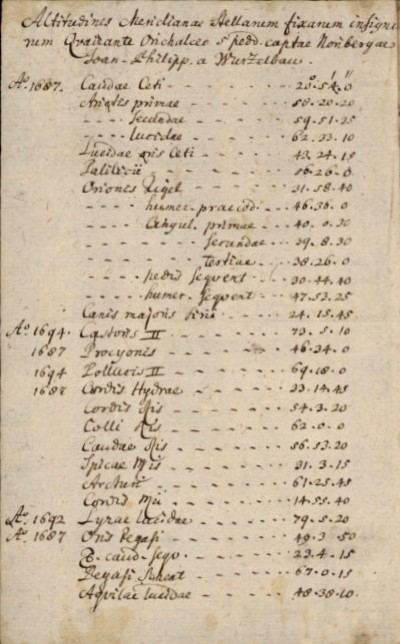 Altitudines Meridianae Stellarum fixarum insignio
rum Quadrante Orichalceo 5 pedd. captae Noribergae
Joan. Philipp. a Wurzelbau.
Ao. 1687. Caudae Ceti - - - - - 20°. 5'. 0"
Arietis primae - - - - - 58. 20. 20
- - - - Secundae - - - - - 59. 51. 25
- - - - lucidae - - - - - 62. 33. 10
Lucidae oris Ceti - - - - - 43. 24. 15
Palilicii - - - - - 56. 26. 0
Orionis Rigel - - - - - 31. 58. 40
- - - - humer. praeced. - - - 46. 36. 0
- - - - Cingul. primae - - - 40. 0. 30
- - - - Secundae - - - 39. 8. 30
- - - - tertiae - - - 38. 26. 0
- - - - pedis sequent - - - 30. 44. 40
- - - - humer. sequent - - - 47. 53. 25
Canis majoris Sirii - - - 24. 15. 45
Ao. 1694. Castoris II - - - - - 73. 5. 10
1687 Procyonis - - - - - 46. 34. 0
1694 Pollucis II - - - - - 69. 18. 0
1687 Cordis Hydrae - - - - - 33. 14. 45
Cordis - - - - - 54. 3. 20
Colli - - - - - 62. 0. 0
Caudae - - - - - 56. 53. 20
Spicae - - - - - 31. 3. 15
Arcturi - - - - - 61. 25. 45
Cordis - - - - - 14. 55. 40
Ao. 1692 Lyrae lucidae - - - - - 79. 5. 20
Ao. 1687 Oris Pegasi - - - - - 49. 3. 50
caud. sequ. - - - - - 23. 4. 15
Pegasi Scheat - - - - - 67. 0. 15
Aquilae lucidae - - - - - 48. 38. 10.